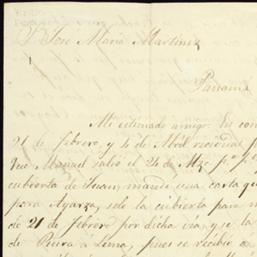 D José Maria Martinez
Panamá
Mi estimado amigo: Sus con
21 de Febrero, y 4 de Abril recividas, p
Manuel salió el 24 de Mzo. pº
cubierta de Juan, mandé una carta qu
para Ayarza, solo la cubierta para m
de 21 de Febrero por dicha via, y se la
de Piura a Lima, pues se recibió